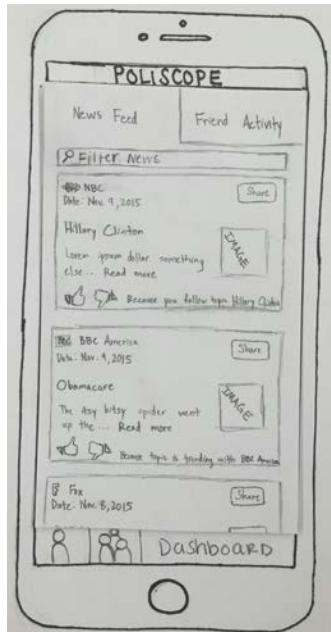 POLISCOPE
News Feed
Friend Activity
Filter News
NBC
Share
Date: Nov. 9, 2015
Hillary Clinton
IMAGE
Lorem ipsum dollar something
else... Read more
Because you follow topic Hillary Clinton
BBC BBC America
Share
Date: Nov. 9, 2015
Obamacare
IMAGE
The itsy bitsy spider went
up the ... Read more
Because topic is trending with BBC America
Fox
Share
Date: Nov. 8, 2015
Dashboard